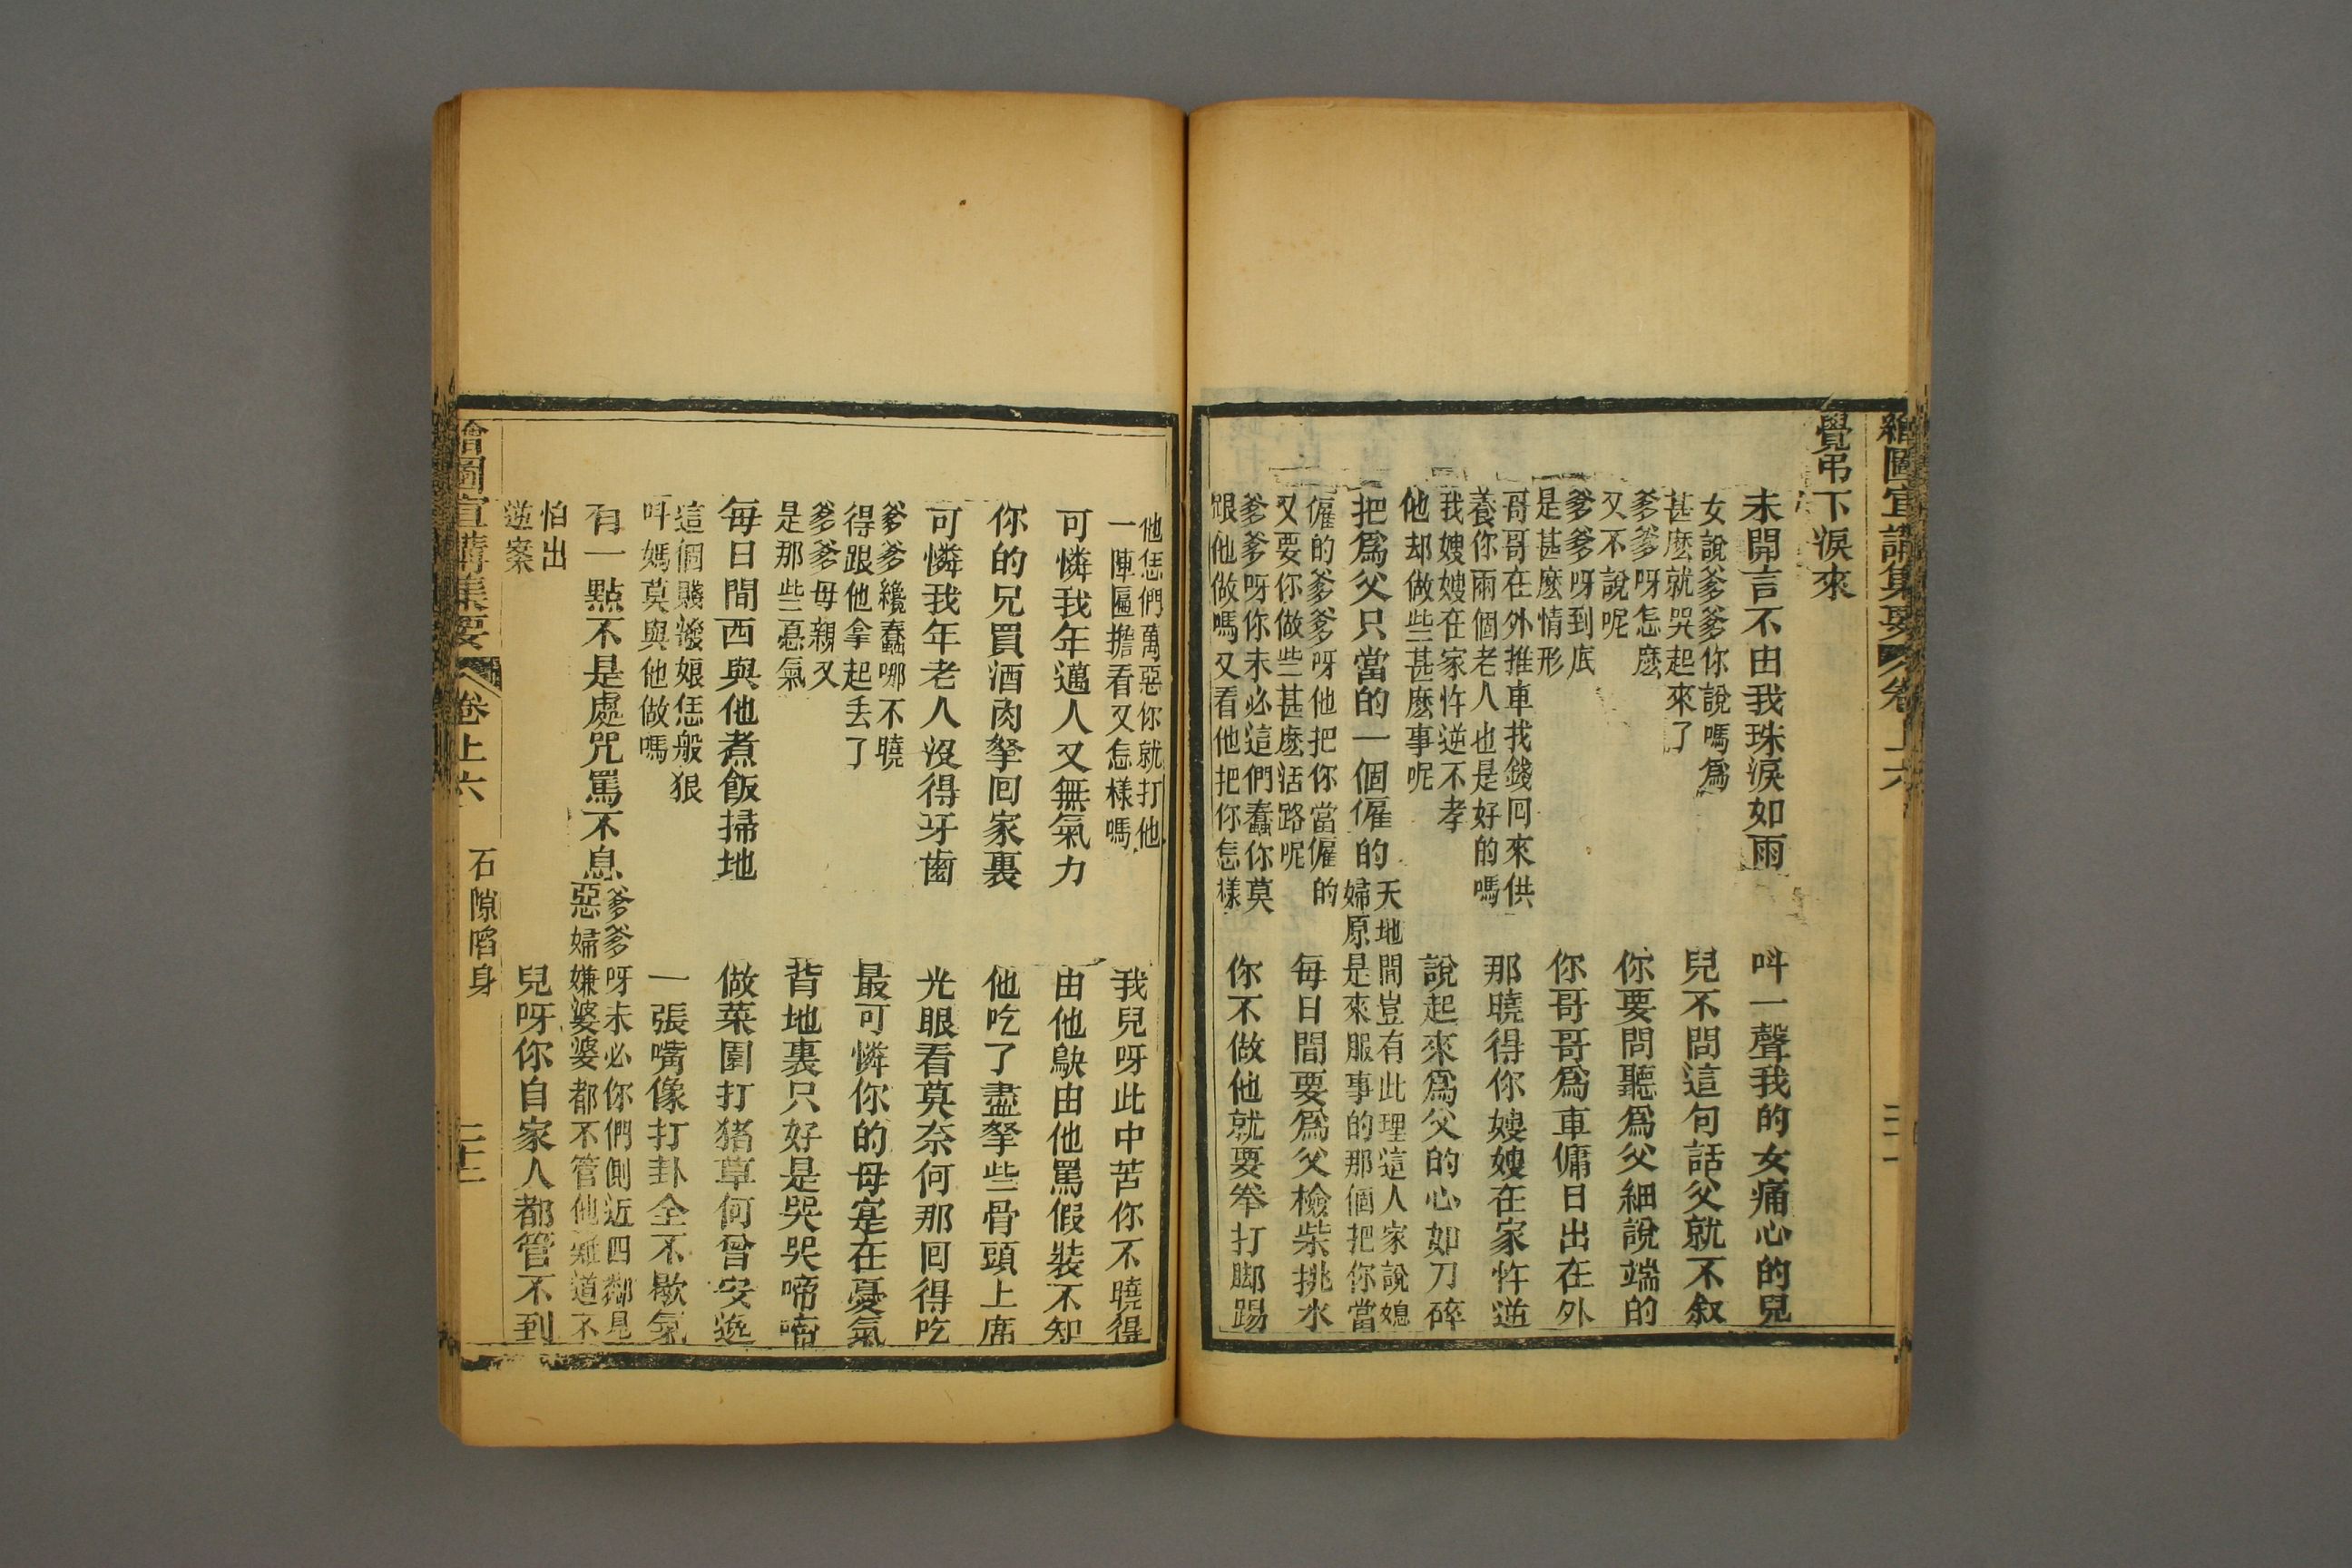 繪圖宣講集要 卷上六 二十一
覺弔下淚來
未開言不由我珠淚如雨
叫一聲我的女痛心的兒
女說爹爹你說嗎爲
甚麽就哭起來了
兒不問這句話父就不叙
爹爹呀怎麽
又不說呢
你要問聽爲父細說端的
爹爹呀到底
是甚麽情形
你哥哥爲車傭日出在外
哥哥在外推車找錢囘來供
養你兩個老人也是好的嗎
那曉得你嫂嫂在家忤逆
我嫂嫂在家忤逆不孝
他却做些甚麽事呢
說起來爲父的心如刀碎
把爲父只當的一個僱的
天地間豈有此理這人家說媳
婦原是來服事的那個把你當
僱的爹爹呀他把你當僱的
又要你做些甚麽活路呢
每日間要爲父檢柴挑水
爹爹呀你未必這們蠢你莫
跟他做嗎又看他把你怎樣
你不做他就要拳打脚踢
他恁們萬惡你就打他
一陣匾擔看又怎樣嗎
我兒呀此中苦你不曉得
可憐我年邁人又無氣力
由他歐由他罵假裝不知
你的兄買酒肉拏囘家裏
他吃了盡拏些骨頭上席
可憐我年老人沒得牙齒
光眼看莫奈何那囘得吃
爹爹纔蠢哪不曉
得跟他拿起丢了
最可憐你的母寔在憂氣
爹爹母親又
是那些慪氣
背地裏只好是哭哭啼啼
每日間西與他煮飯掃地
做菜園打猪草何曾安逸
這個賤潑娘恁般狠
叫媽莫與他做嗎
一張嘴像打卦全不歇氣
有一點不是處咒罵不息
爹爹呀未必你們側近四鄰見
惡婦嫌婆婆都不管他難道不
怕出
逆案
兒呀你自家人都管不到
繪圖宣講集要 卷上六 石隙陷身 二十二